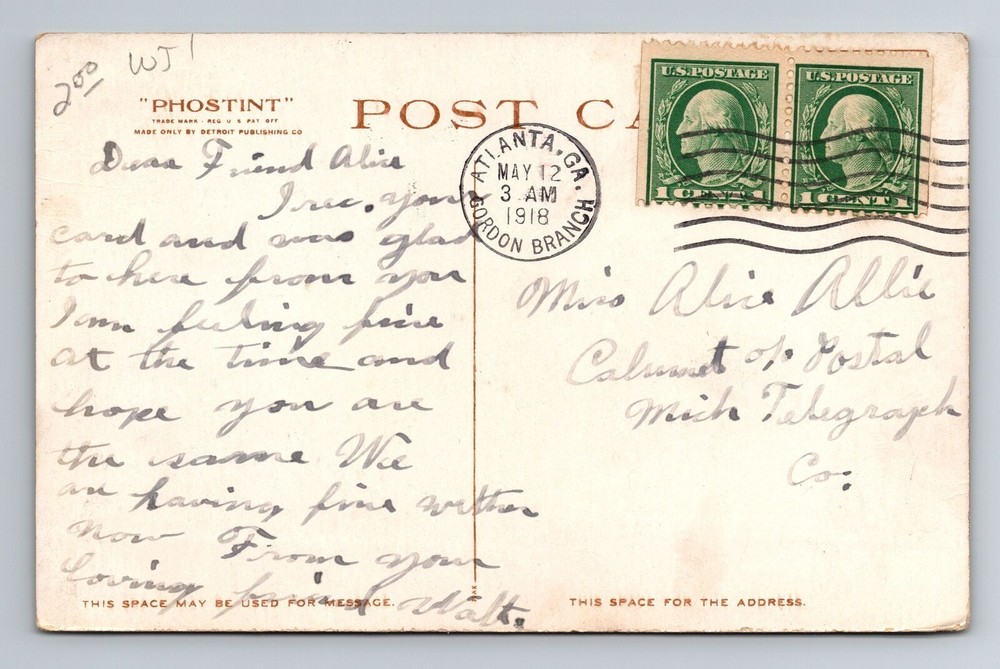 2.00 WJ 1
"PHOSTINT"
TRADE MARK - REG U S PAT OFF
MADE ONLY BY DETROIT PUBLISHING CO
POST CA
U.S.POSTAGE U.S.POSTAGE
1 CENT 1 1 CENT 1
ATLANTA, GA.
MAY 12
3 AM
1918
GORDON BRANCH
Dear Friend Alice
I rec. your
card and was glad
to here from you
I am feeling fine
at the time and
hope you are
the same We
are having fine wether
now From your
loving friend Walt.
THIS SPACE MAY BE USED FOR MESSAGE.
Miss Alice Allie
Calumet % Postal
Mich Telegraph
Co:
THIS SPACE FOR THE ADDRESS.